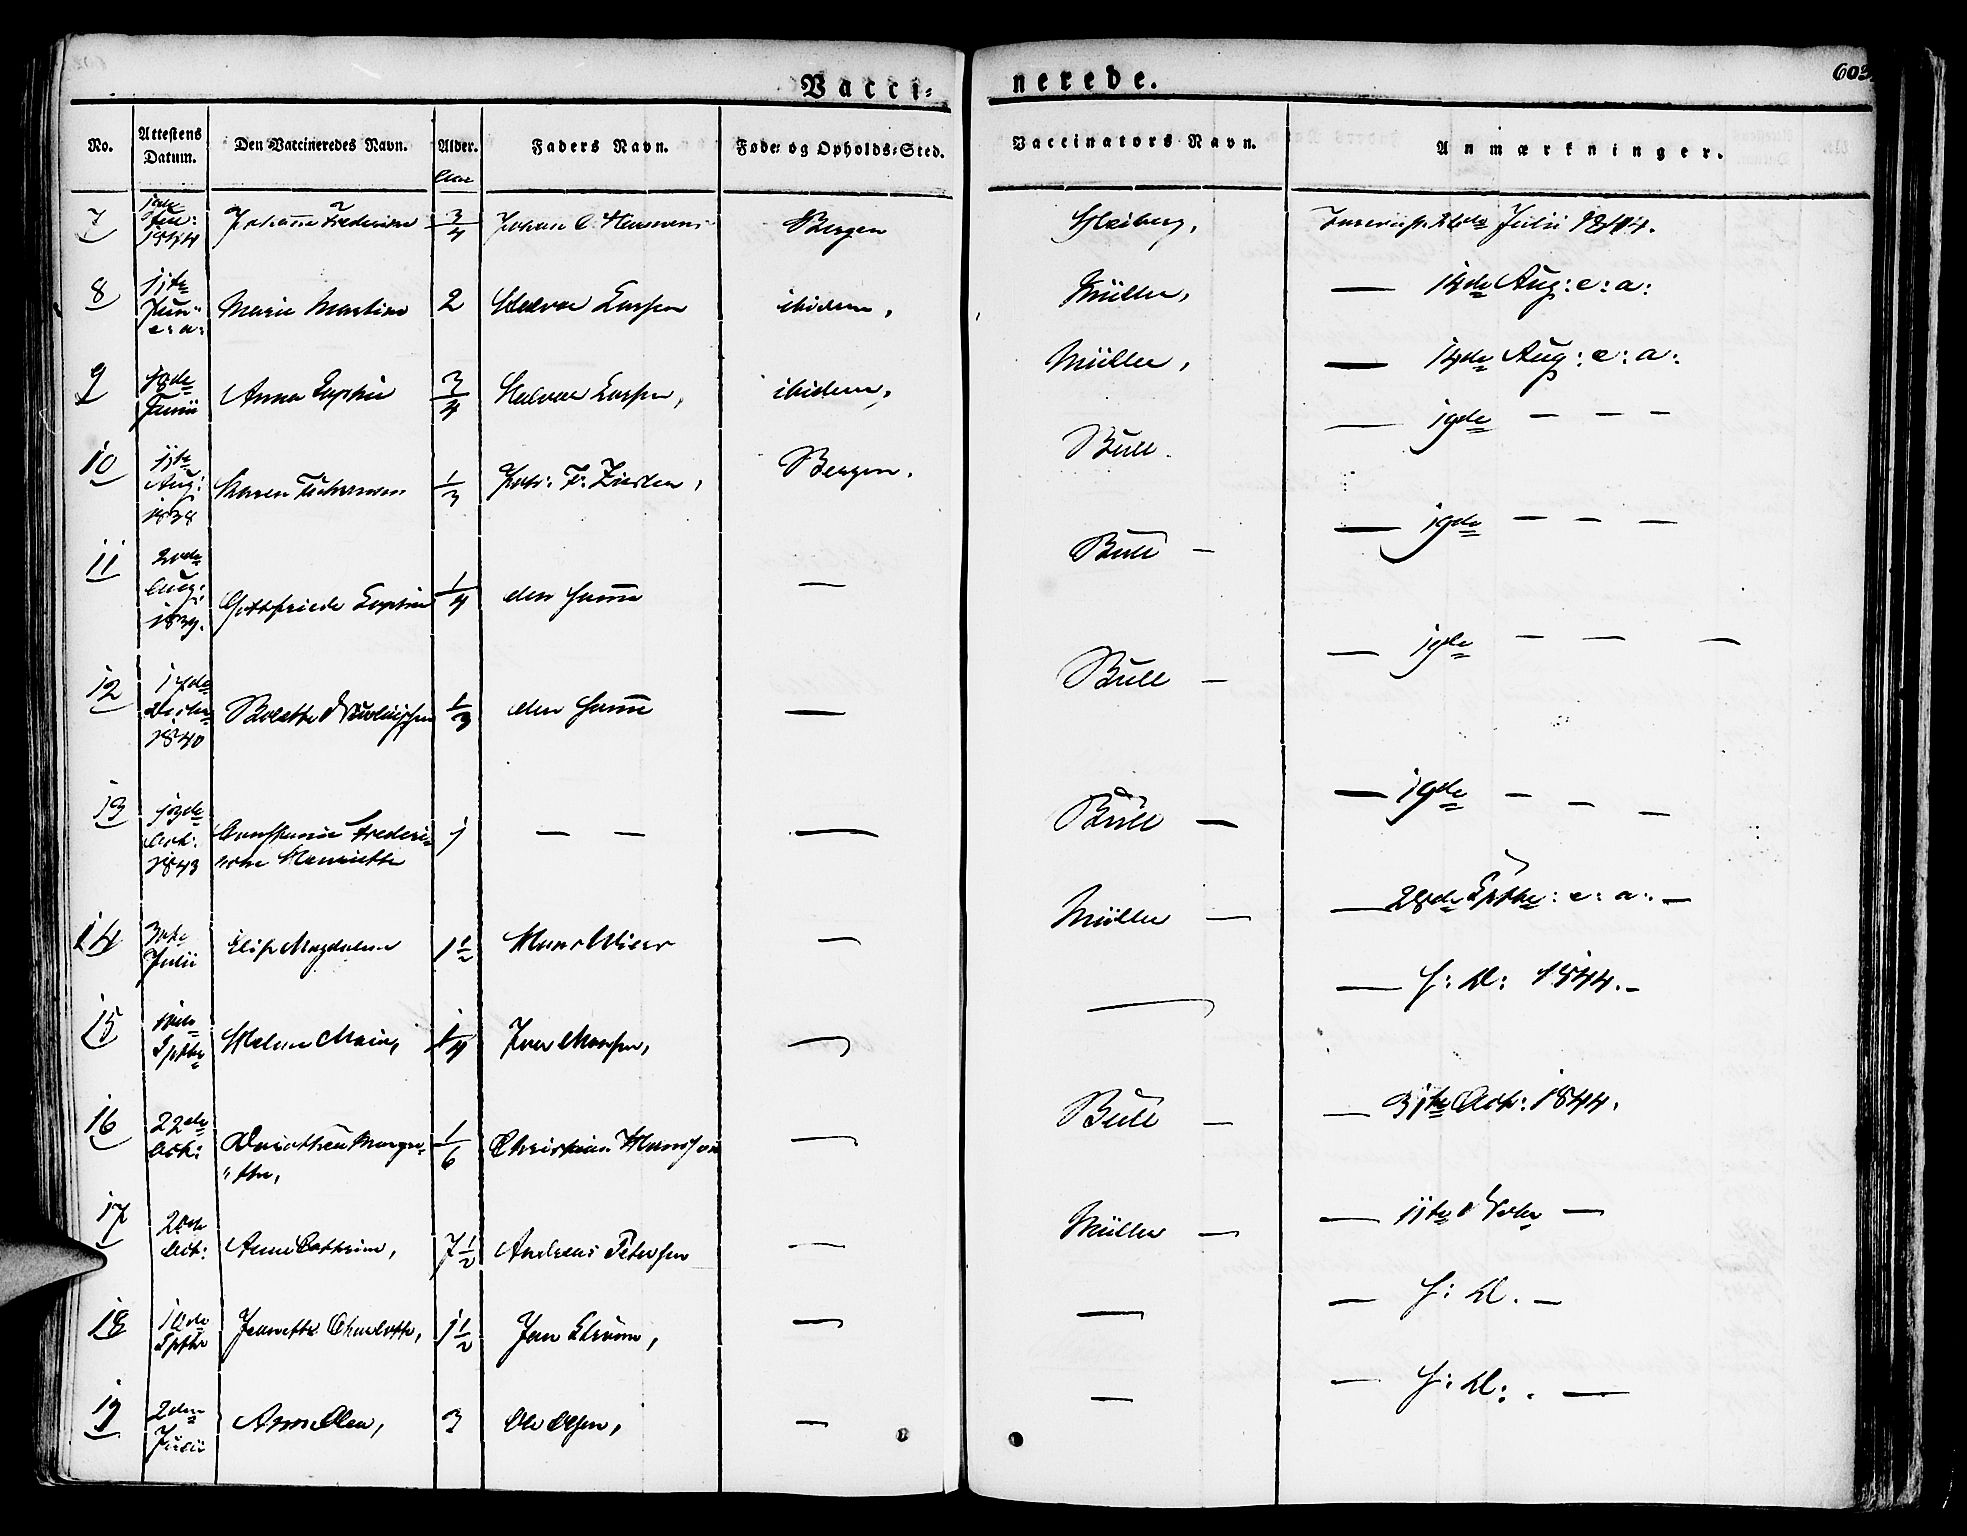 Vacci-
nerede.
603
No.
Attestens Datum.
Den Vaccineredes Navn.
Alder.
Faders Navn.
Føde- og Opholds-Sted.
Vaccinators Navn.
Anmærkninger.
Aar
7 1844 Johanne Frederikke 3/4 Johan C. Bergen Inscrip. Julii 1844.
8 11te Juni e: a: Marie Martine 2 Halvor Larsen ibidem, Müller, — 14de Aug: e: a:
9 10de Junii Anna Sophie 3/4 Halvor Larsen, ibidem, Müller, — 14de Aug: e: a:
10 11te Aug: 1838 Maren 1/3 Joh: F. Bergen. Bull. — 19de — — —
11 20de Aug: 1839. Gottfriede Sophie 1/4 den samme — Bull — — 19de — — —
12 17de 1840 Bolette 1/3 den samme — Bull — — 19de — — —
13 13de Oct: 1843 Constance Frederi-
cke Henriette 1 — — — Bull — — 19de — — —
14 Julii Elise Magdalene 1 1/2 — Müller — — 28de Septbr: e: a: —
15 Septbr Helene Marie, 1/4 Iver — — — s: D: 1844. —
16 22de Oct: Dorothea Margre-
"the, 1/6 Christian — Bull — — 31te Octr: 1844.
17 20de Oct: Anne Cathrine, 7 1/2 Andreas Petersen — Müller — — 11te Novbr —
18 10de Septbr Jeanette Charlotte, 1 1/2 Jan Strøm, — — — s: D. —
19 2den Julii Anne Olea, 3 Ole Olsen, — — — s: D: . —